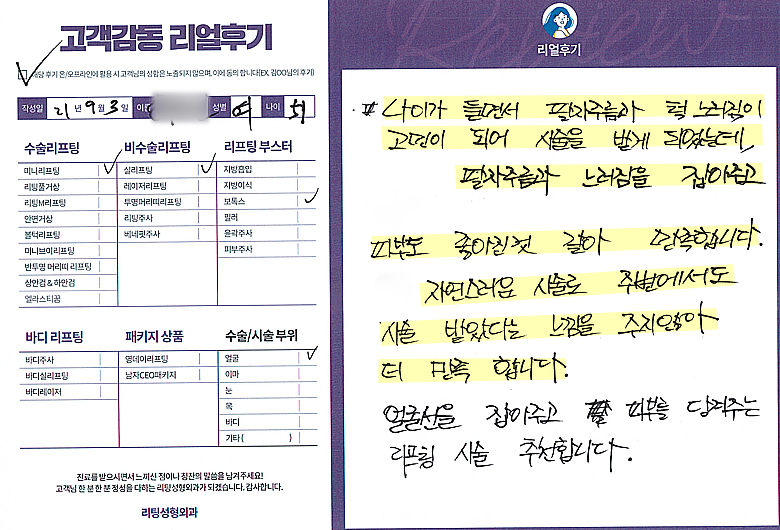 고객감동 리얼후기
해당 후기 온/오프라인에 활용 시 고객님의 성함은 노출되지 않으며, 이에 동의 합니다(EX. 김OO님의 후기)
작성일 21년 9월 3일 이름 성별 여 나이
수술리프팅
미니리프팅
리팅풀거상
리팅M리프팅
안면거상
볼턱리프팅
미니브이리프팅
반투명 머리띠 리프팅
상안검 & 하안검
엘라스티꿈
비수술리프팅
실리프팅
레이저리프팅
투명머리띠리프팅
리팅주사
베네핏주사
리프팅 부스터
지방흡입
지방이식
보톡스
필러
윤곽주사
피부주사
바디 리프팅
바디주사
바디실리프팅
바디레이저
패키지 상품
영데이리프팅
남자CEO패키지
수술/시술 부위
얼굴
이마
눈
목
바디
기타( )
진료를 받으시면서 느끼신 점이나 칭찬의 말씀을 남겨주세요!
고객님 한 분 한 분 정성을 다하는 리팅성형외과가 되겠습니다. 감사합니다.
리팅성형외과
Review
리얼후기
나이가 들면서 팔자주름과 턱 느러짐이
고민이 되어 시술을 받게 되었는데,
팔자주름과 느러짐을 잡아주고
피부도 좋아진것 같아 만족합니다.
자연스러운 시술로 주변에서도
시술 받았다는 느낌을 주지않아
더 만족 합니다.
얼굴선을 잡아주고 피부를 당겨주는
리프팅 시술 추천합니다.